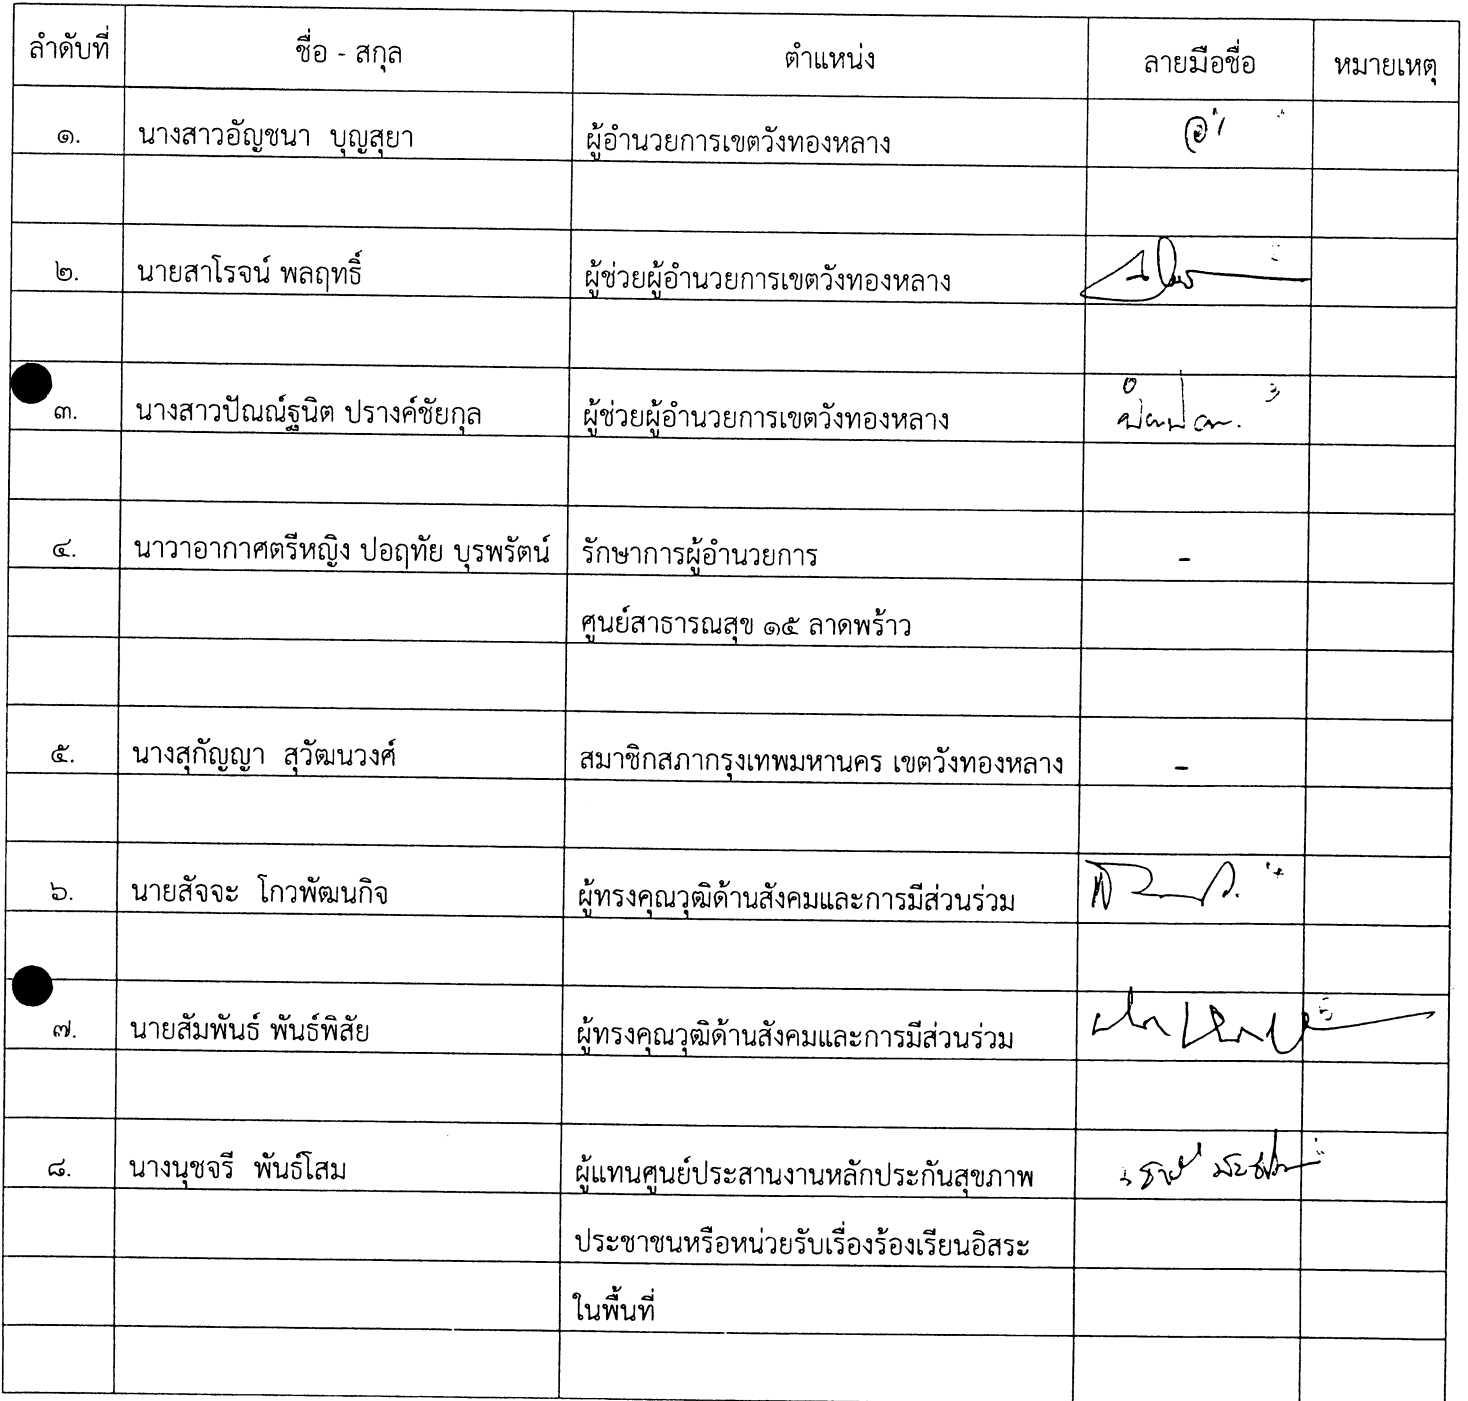 ลำดับที่ ชื่อ - สกุล ตำแหน่ง ลายมือชื่อ หมายเหตุ
๑. นางสาวอัญชนา บุญสุยา ผู้อำนวยการเขตวังทองหลาง
๒. นายสาโรจน์ พลฤทธิ์ ผู้ช่วยผู้อำนวยการเขตวังทองหลาง
๓. นางสาวปัณณ์ฐนิต ปรางค์ชัยกุล ผู้ช่วยผู้อำนวยการเขตวังทองหลาง
๔. นาวาอากาศตรีหญิง ปอฤทัย บุรพรัตน์ รักษาการผู้อำนวยการ -
ศูนย์สาธารณสุข ๑๕ ลาดพร้าว
๕. นางสุกัญญา สุวัฒนวงศ์ สมาชิกสภากรุงเทพมหานคร เขตวังทองหลาง -
๖. นายสัจจะ โกวพัฒนกิจ ผู้ทรงคุณวุฒิด้านสังคมและการมีส่วนร่วม
๗. นายสัมพันธ์ พันธ์พิสัย ผู้ทรงคุณวุฒิด้านสังคมและการมีส่วนร่วม
๘. นางนุชจรี พันธ์โสม ผู้แทนศูนย์ประสานงานหลักประกันสุขภาพ
ประชาชนหรือหน่วยรับเรื่องร้องเรียนอิสระ
ในพื้นที่